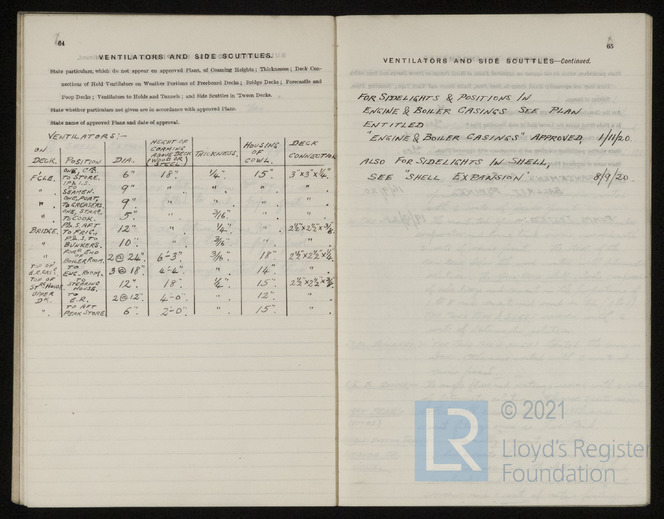 64
VENTILATORS AND SIDE SCUTTLES.
State particulars, which do not appear on approved Plans, of Coaming Heights; Thicknesses; Deck Con-
nections of Hold Ventilators on Weather Portions of Freeboard Decks; Bridge Decks; Forecastle and
Poop Decks; Ventilators to Holds and Tunnels; and Side Scuttles in 'Tween Decks.
State whether particulars not given are in accordance with approved Plans.
State name of approved Plans and date of approval.
VENTILATORS:-
ON DECK. POSITION DIA. HEIGHT OF COAMING ABOVE DECK (WOOD OR STEEL) THICKNESS. HOUSING OF COWL. DECK CONNECTION
F'CLE. TO STORE. 6" 18". 1/4". 15". 3"x3"x1/4"
" SEAMEN. 9" " " " "
" ONE, PORT, TO GREASERS. 9" " " " "
" TO COOK. 5" " 3/16" " "
BRIDGE. P&S. AFT TO FRIG. 12" " 1/4" "
" P.& S. TO BUNKERS. 10" " 3/16" " "
" BOILER ROOM. 2 @ 24" 6'-3" 3/16" 18"
TOP OF TO ENG. ROOM. 3 @ 18" 4'-4" " 14" "
TOP OF TO STEERING HOUSE. 12" 18" 1/4" 15"
UPPER DK. TO E.R. 2 @ 12" 4'-0" " 12" "
" TO AFT PEAK STORE. 6" 2'-0" " 15" "
65
VENTILATORS AND SIDE SCUTTLES—Continued.
FOR SIDELIGHTS & POSITIONS IN
ENGINE & BOILER CASINGS SEE PLAN
ENTITLED
"ENGINE & BOILER CASINGS" APPROVED, 1/11/20.
ALSO FOR SIDELIGHTS IN SHELL,
SEE "SHELL EXPANSION". 8/9/20.
LR
© 2021
Lloyd's Register
Foundation